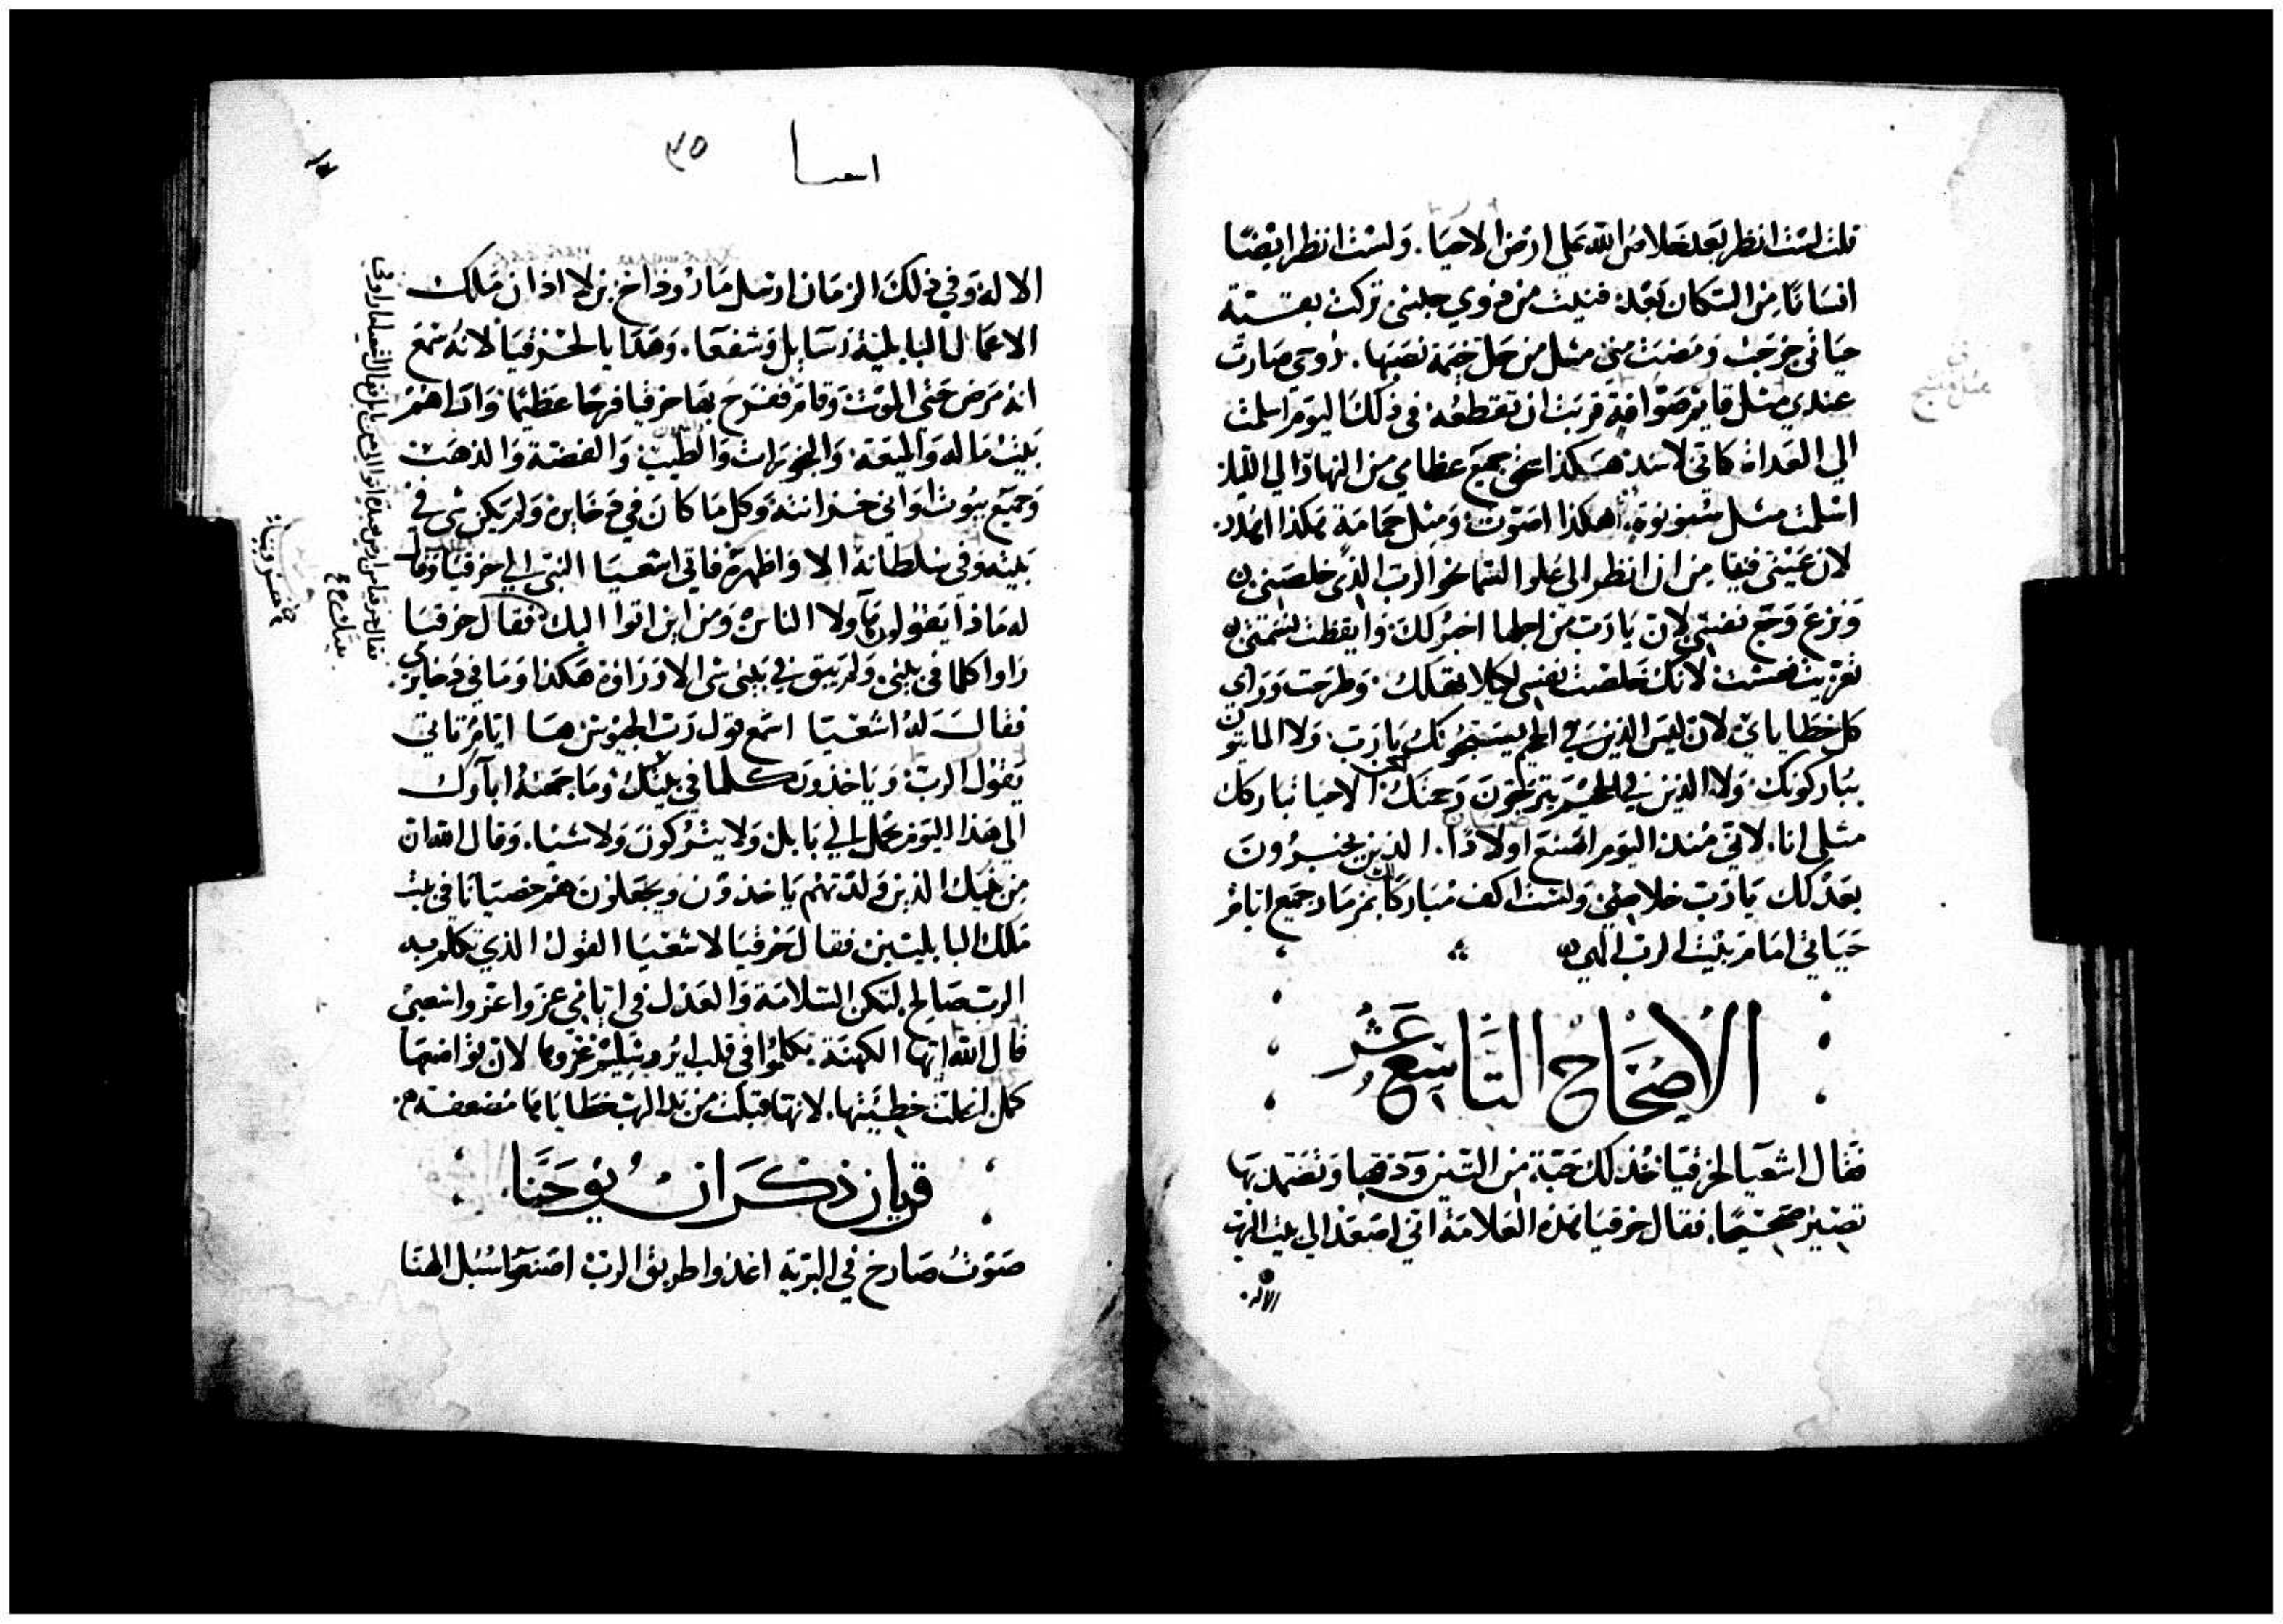 قلت لست انظر بعد خلاص الله على ارض الاحيا. ولست انظر ايضًا
انسانًا من السكان بعد. فنيت من ذوي جلسى تركت بقسية
حياتى خرجت ومضت منى مثل من حل خيمة نصبها. روحي صارت
عندي مثل قربت ان تقطعه. في ذلك اليوم اسلمت
الي الغداة كاني لاسد هكذا جميع عظامي من النهار الي الليل
اسلمت مثل سنونوة. هكذا اصوت ومثل حمامة هكذا اهدد.
لان عيني فنيا من ان انظر الى علو السما نحو الرب الذي خلصني
ونزع وجع نفسي لان يارب من اجلها اخبر لك. وايقظت نسمتى
تعزيت فعشت. لانك خلصت نفسي لكيلا تهلك. وطرحت وراي
كل خطاياي. لان ليس الذين في الجحيم يسبحونك يارب. ولا المايتون
يباركونك. ولا الذين في الجحيم يترجون رحمتك. الاحيا تباركك
مثلى انا. لاني منذ اليوم اصنع اولادًا. الذين يخبرون
بعدلك يارب خلاصي. ولست اكف مباركًا بمزمار جميع ايام
حياتي امام بيت الرب الهي
الاصحاح التاسع عشر
فقال اشعيا لحزقيا خذ لك حبة من التين ودقها وتضمد بها
تصير صحيحًا. فقال حزقيا هذه العلامة اني اصعد الي بيت الرب
الاله.
اسعيا
٣٥
الاله. وفي ذلك الزمان ارسل مارودداخ بن لاادان ملك
الاعمال البابلية رسايل وشفعا. وهدايا لحزقيا لانه سمع
انه مرض حتى الموت وقام ففرح بها حزقيا فرحًا عظيمًا واراهم
بيت ماله والميعة. والجوهرات والطيب والفضة والذهب
وجميع بيوت اواني خزانته وكل ما كان في ذخاينه ولم يكن شى في
بيته وفي سلطانه الا واظهره فاتى اشعيا النبى الي حزقيا وقال
له ماذا يقولون هاولا الناس ومن اين اتوا اليك فقال حزقيا
راوا كلما في بيتى. ولم يبق في بيتى شى الا وراوه هكذا وما في ذخايري.
فقال له اشعيا اسمع قول رب الجيوش ها ايام تاتي
يقول الرب. وياخذون كلما في بيتك. وما جمعه اباوك
الى هذا اليوم يحمل الي بابل ولا يتركون ولا شيا. وقال الله ان
من بنيك الذين ولدتهم ياخذون ويجعلون هم خصيانًا في بيت
ملك البابليين. فقال حزقيا لاشعيا القول الذي تكلم به
الرب صالح. لتكن السلامة والعدل في ايامي عزوا عزوا شعبى
قال الله ايها الكهنة تكلموا في قلب ايروشليم عزوها لان تواضعها
كمل. انحلت خطيتها. لانها قبلت من يد الرب خطاياها مضعفة.
قريان ذكران يوحنا
صوت صارخ في البرية اعدوا طريق الرب اصنعوا سبل الهنا